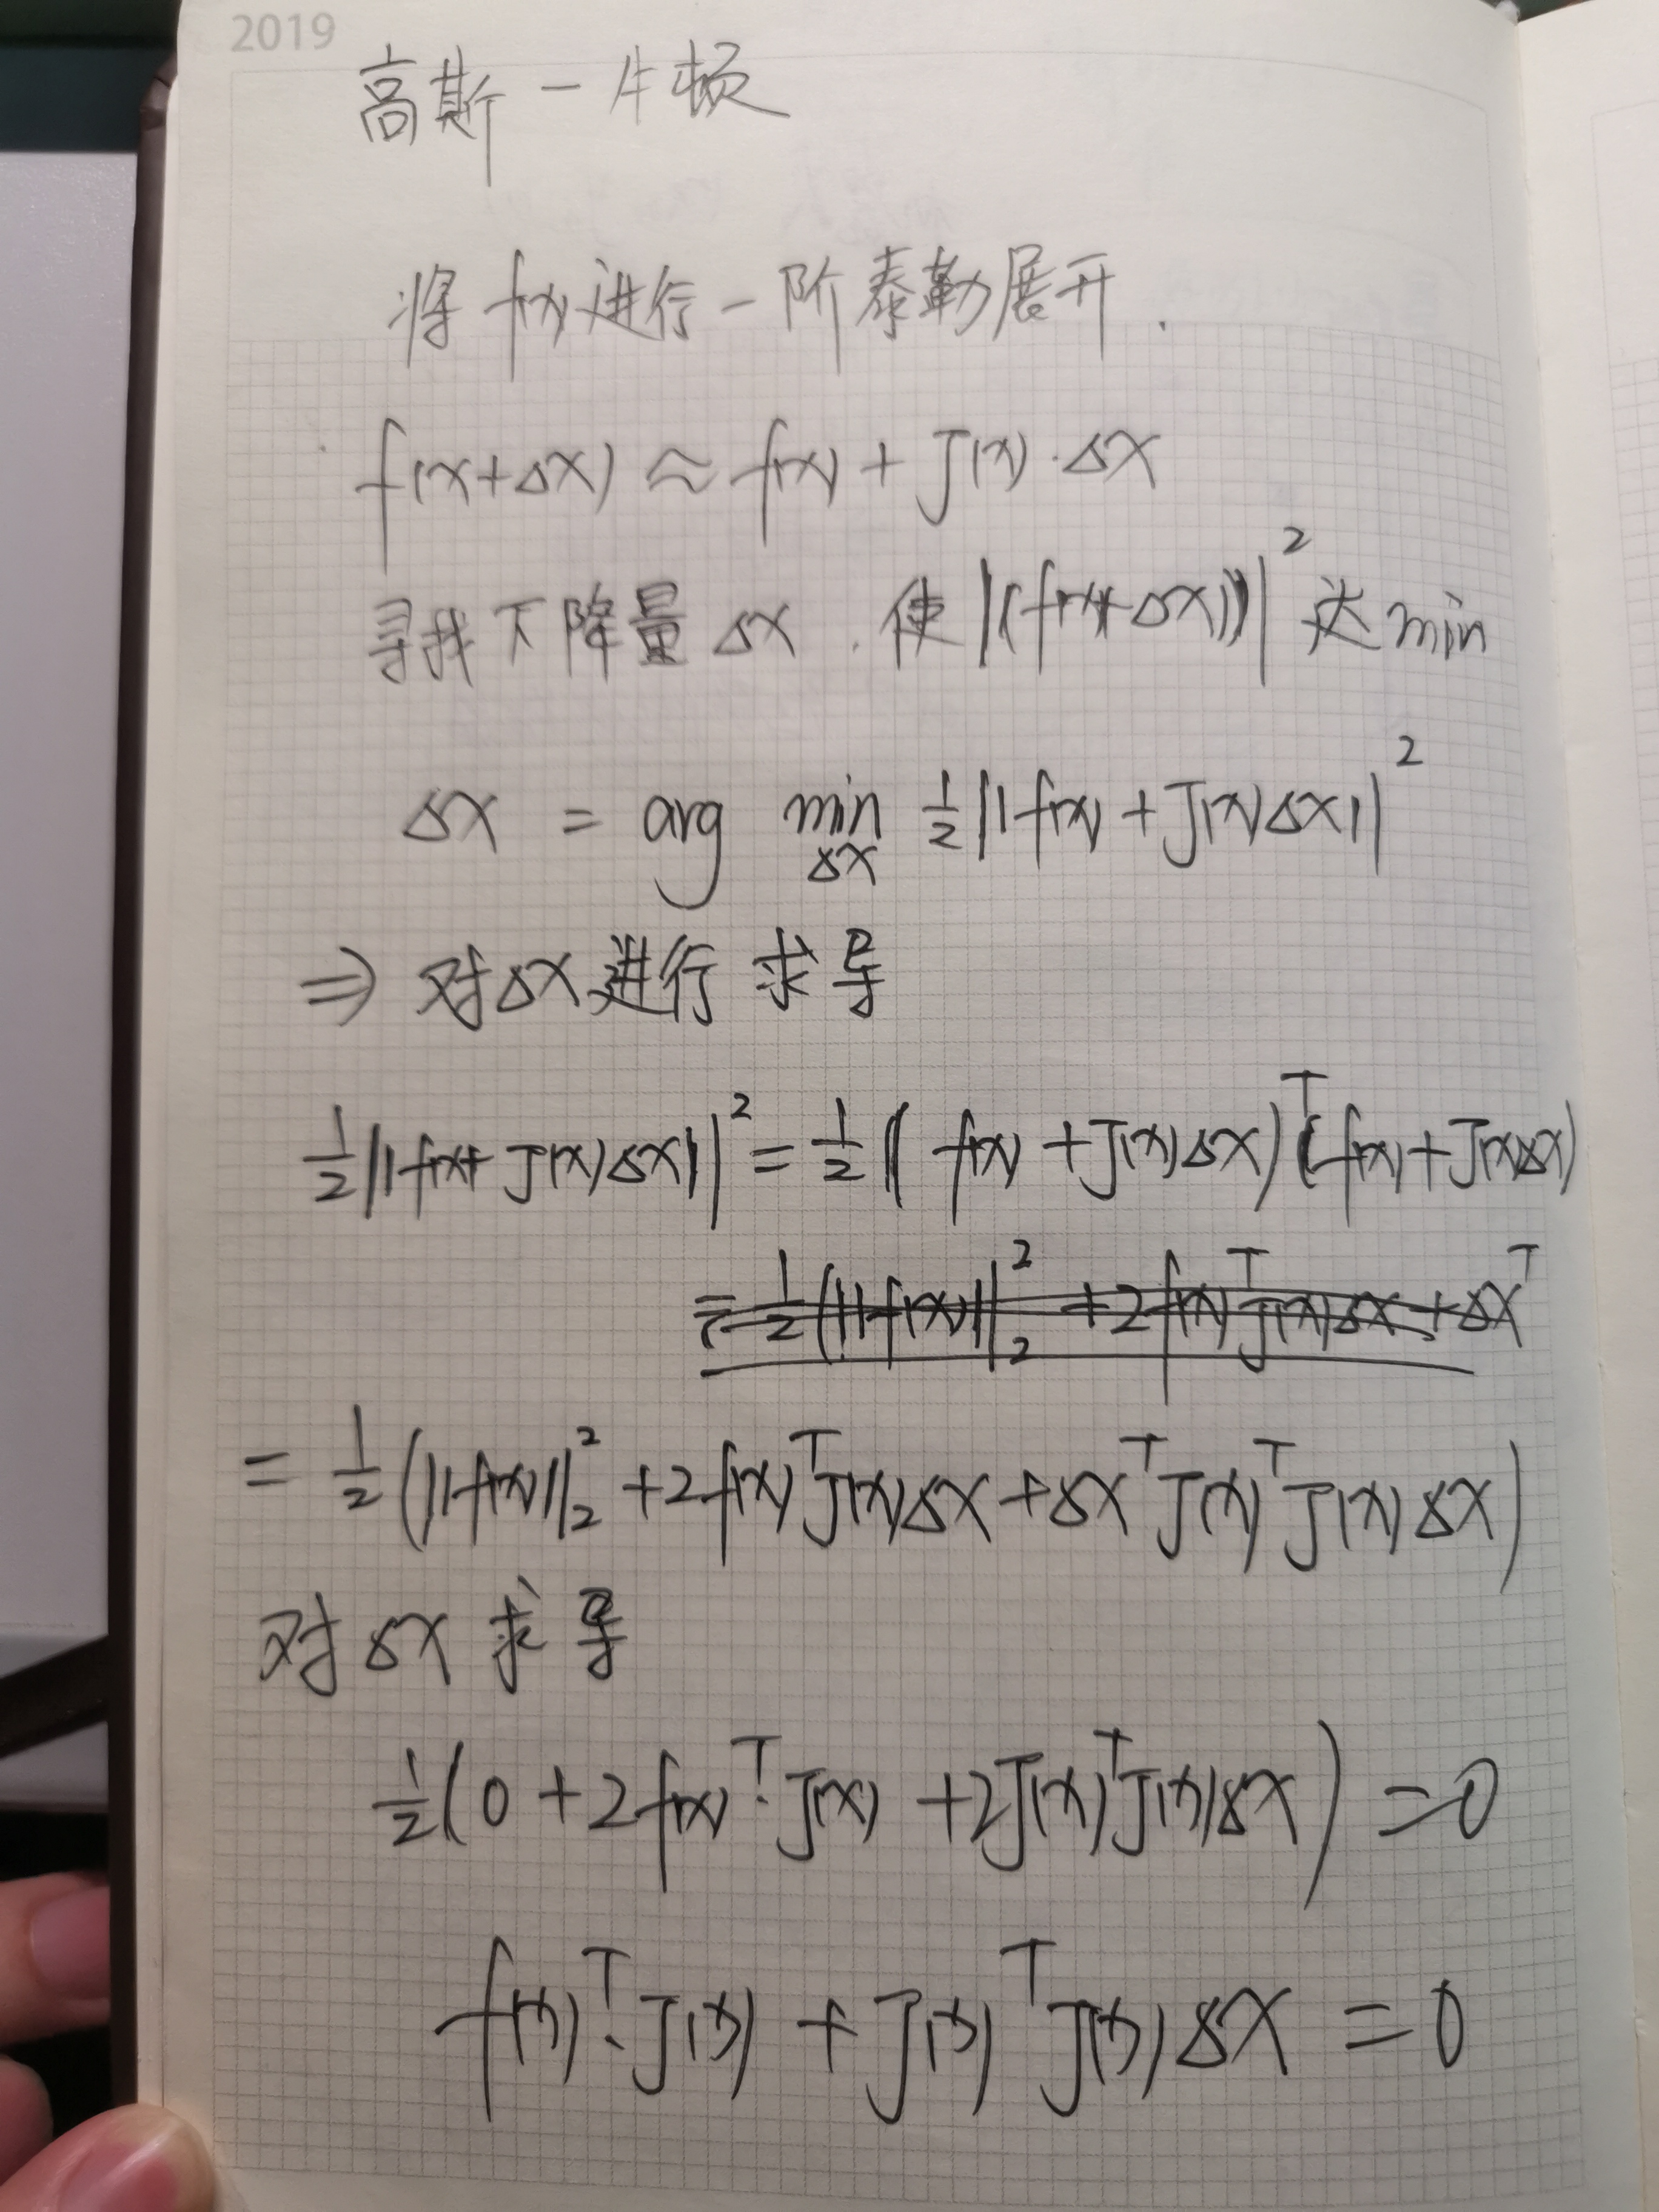 2019
高斯－牛顿
将 f(x) 进行一阶泰勒展开.
f(x+Δx) ≈ f(x) + J(x)·Δx
寻找下降量 Δx . 使 ||f(x+Δx)||² 达 min
Δx = arg min ½||f(x) + J(x)Δx||²
Δx
⇒ 对Δx进行求导
½||f(x)+J(x)Δx||² = ½(f(x)+J(x)Δx)ᵀ(f(x)+J(x)Δx)
= ½(||f(x)||₂² + 2f(x)ᵀJ(x)Δx + Δxᵀ
= ½(||f(x)||₂² + 2f(x)ᵀJ(x)Δx + ΔxᵀJ(x)ᵀJ(x)Δx)
对Δx求导
½(0 + 2f(x)ᵀ·J(x) + 2J(x)ᵀJ(x)Δx) = 0
f(x)ᵀ·J(x) + J(x)ᵀJ(x)Δx = 0